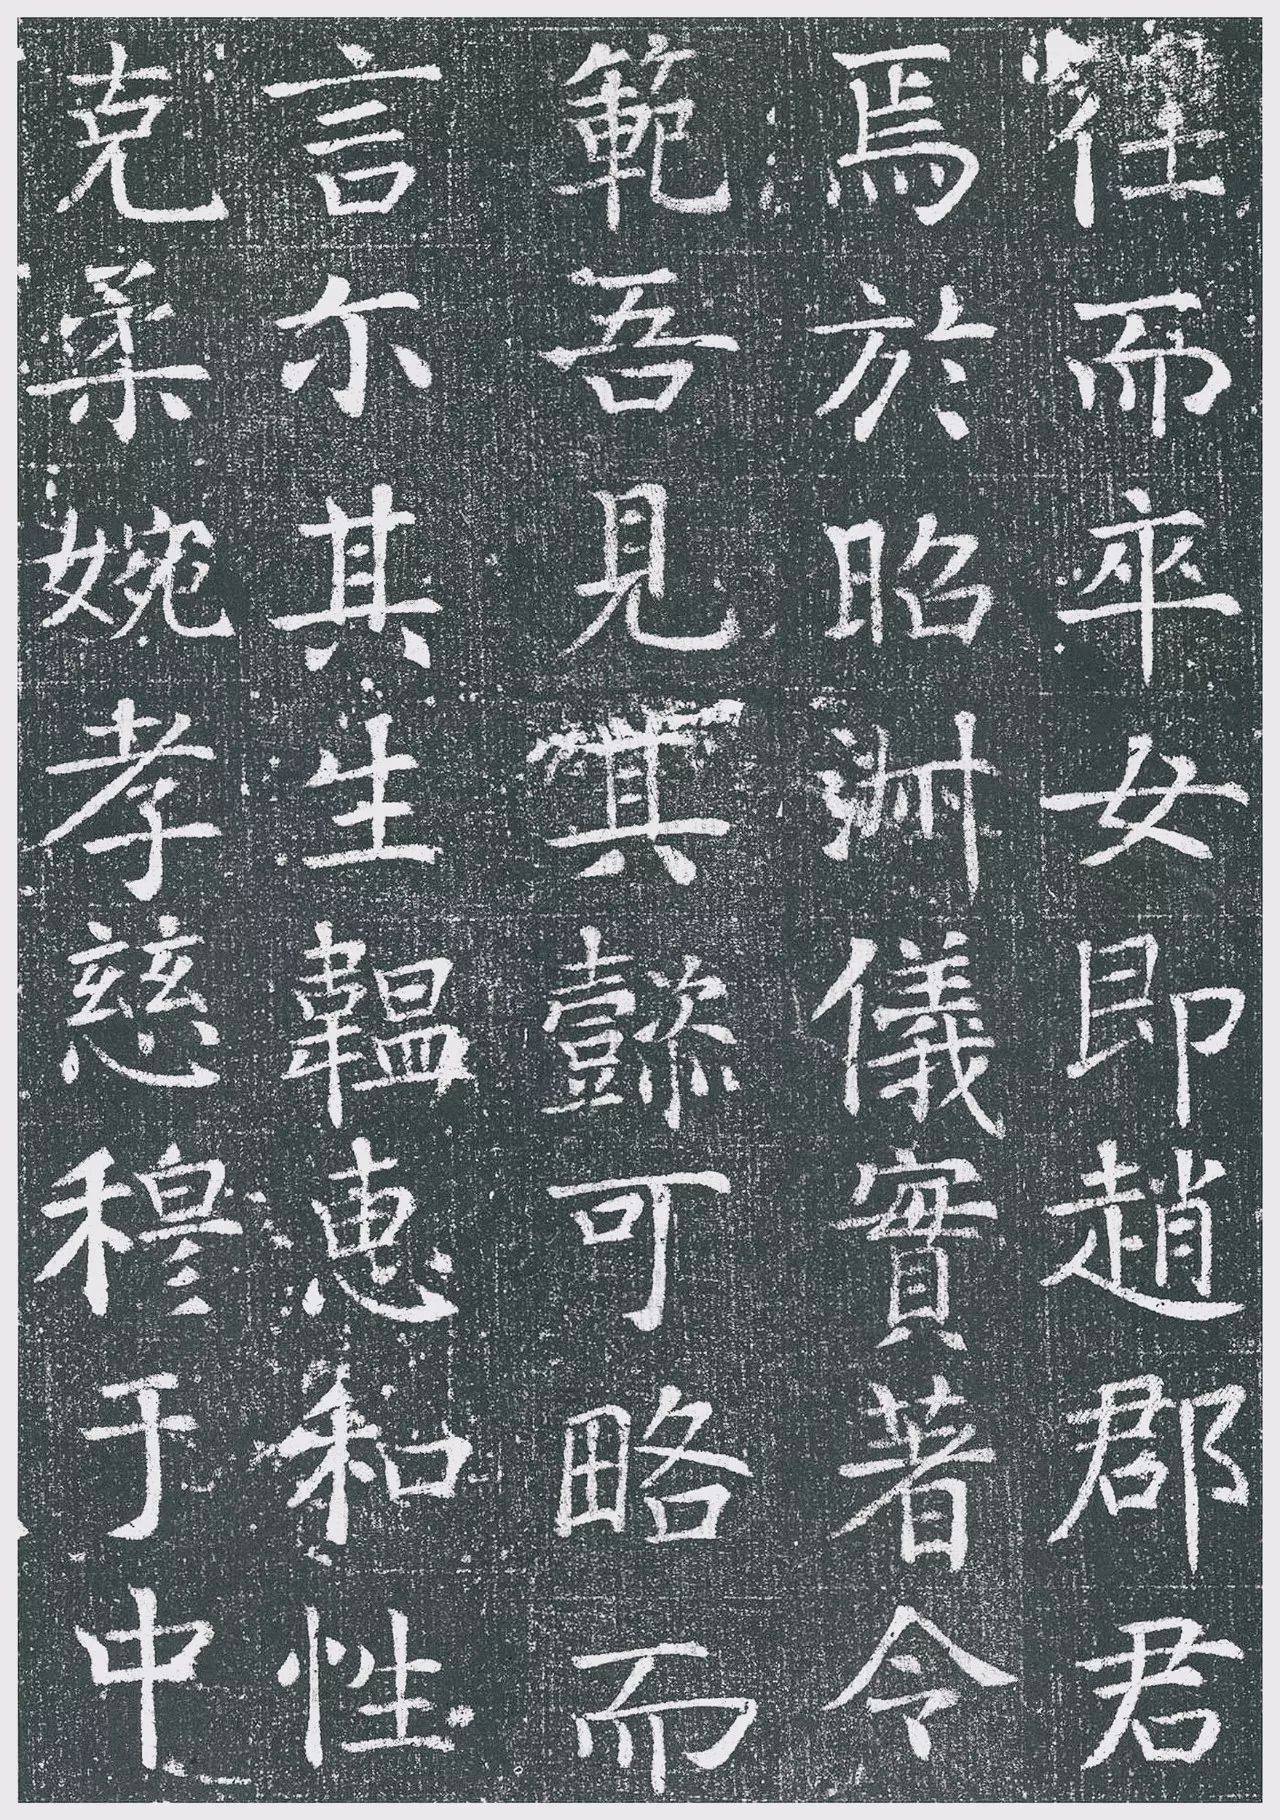 往而卒女即趙郡君
焉於昭淋儀實著令
範吾見其懿可略而
言尓其生韞恵和性
克柔婉孝慈穆于中